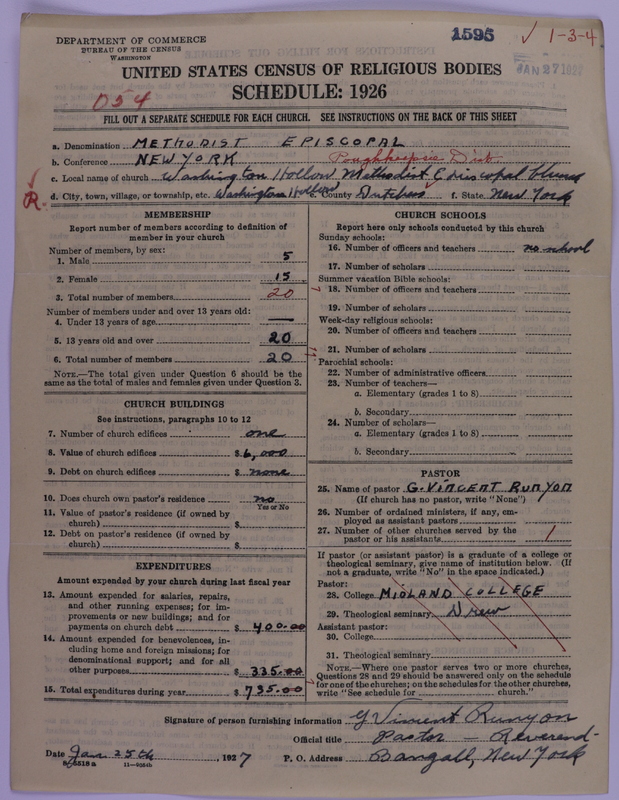 DEPARTMENT OF COMMERCE
BUREAU OF THE CENSUS
WASHINGTON
1595
✓ 1-3-4
JAN 27 1927
UNITED STATES CENSUS OF RELIGIOUS BODIES
SCHEDULE: 1926
054
FILL OUT A SEPARATE SCHEDULE FOR EACH CHURCH. SEE INSTRUCTIONS ON THE BACK OF THIS SHEET
a. Denomination METHODIST EPISCOPAL
b. Conference NEW YORK Poughkeepsie Dist.
c. Local name of church Washington Hollow Methodist Episcopal Church
R. d. City, town, village, or township, etc. Washington Hollow e. County Dutchess f. State New York
MEMBERSHIP
Report number of members according to definition of
member in your church
Number of members, by sex:
1. Male 5
2. Female 15
3. Total number of members 20
Number of members under and over 13 years old:
4. Under 13 years of age —
5. 13 years old and over 20
6. Total number of members 20
NOTE.—The total given under Question 6 should be
same as the total of males and females given under Question 3.
CHURCH BUILDINGS
See instructions, paragraphs 10 to 12
7. Number of church edifices one
8. Value of church edifices $6,000
9. Debt on church edifices $ none
10. Does church own pastor's residence no
Yes or No
11. Value of pastor's residence (if owned by
church) $
12. Debt on pastor's residence (if owned by
church) $
EXPENDITURES
Amount expended by your church during last fiscal year
13. Amount expended for salaries, repairs,
and other running expenses; for im-
provements or new buildings; and for
payments on church debt $ 400.00
14. Amount expended for benevolences, in-
cluding home and foreign missions; for
denominational support; and for all
other purposes $ 335.00
15. Total expenditures during year $ 735.00
CHURCH SCHOOLS
Report here only schools conducted by this church
Sunday schools:
16. Number of officers and teachers no school
17. Number of scholars
Summer vacation Bible schools:
18. Number of officers and teachers
19. Number of scholars
Week-day religious schools:
20. Number of officers and teachers
21. Number of scholars
Parochial schools:
22. Number of administrative officers
23. Number of teachers—
a. Elementary (grades 1 to 8)
b. Secondary
24. Number of scholars—
a. Elementary (grades 1 to 8)
b. Secondary
PASTOR
25. Name of pastor G. VINCENT RUNYON
(If church has no pastor, write "None")
26. Number of ordained ministers, if any, em-
ployed as assistant pastors
27. Number of other churches served by the
pastor or his assistants 1
If pastor (or assistant pastor) is a graduate of a college or
theological seminary, give name of institution below. (If
not a graduate, write "No" in the space indicated.)
Pastor:
28. College MIDLAND COLLEGE
29. Theological seminary Drew
Assistant pastor:
30. College
31. Theological seminary
NOTE.—Where one pastor serves two or more churches,
Questions 28 and 29 should be answered only on the schedule
for one of the churches; on the schedules for the other churches,
write "See schedule for church."
Signature of person furnishing information G Vincent Runyon
Official title Pastor — Reverend-
Date Jan. 25th, 1927 P. O. Address Bangall, New York